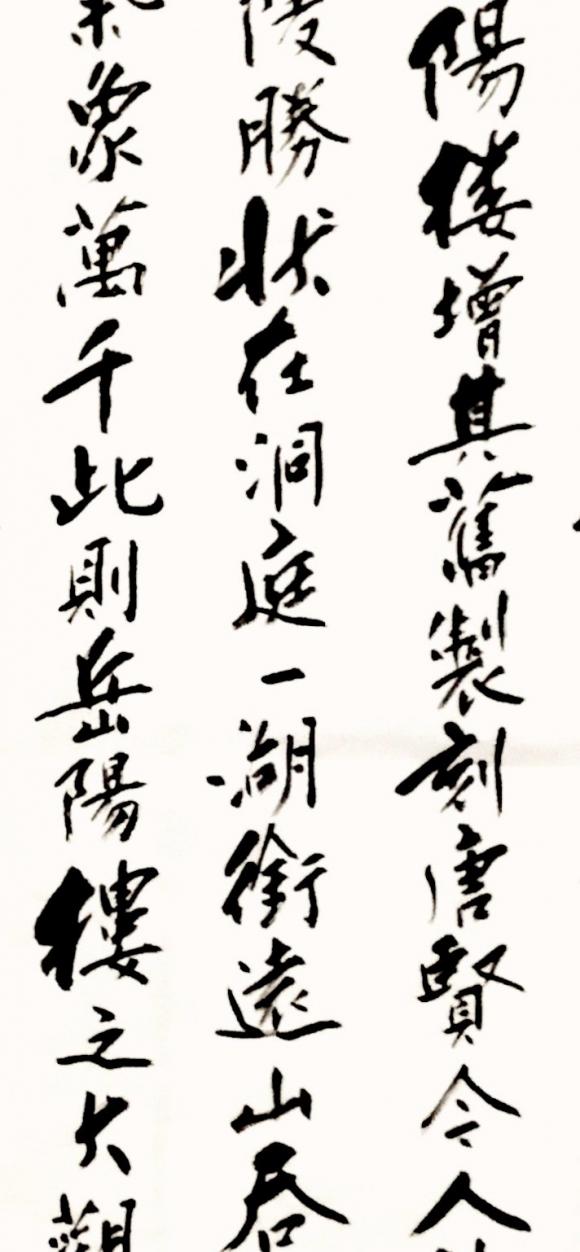 陽楼增其舊製刻唐賢今人
陵勝狀在洞庭一湖銜遠山吞
氣象萬千此則岳陽樓之大觀